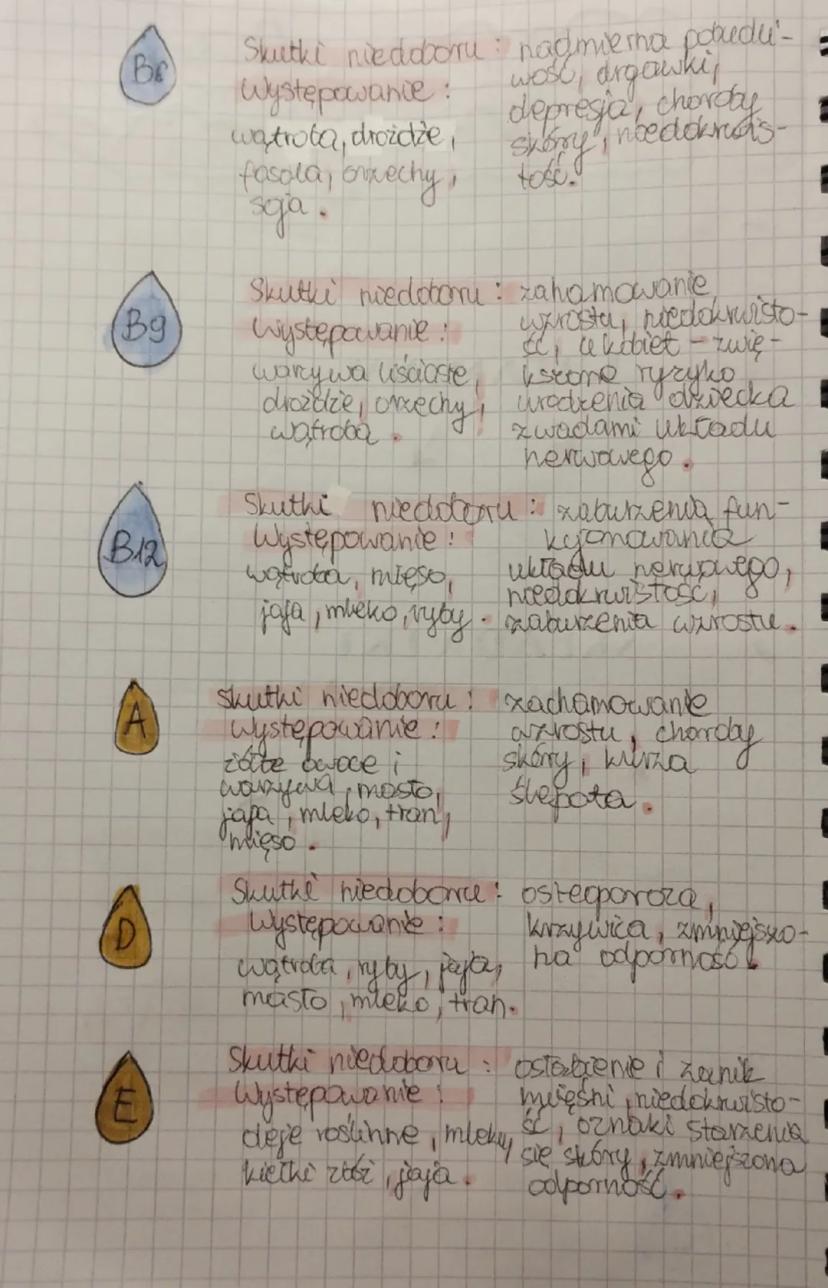 B6
Skutki niedoboru : nadmierna pobudli-
Występowanie : wość, drgawki,
wątroba, drożdże, depresja, chordby
fasola, orzechy, skóry, niedokrwis-
soja. tość.
B9
Skutki niedoboru : zahamowanie
Występowanie : wzrostu, niedokrwisto-
warzywa liściaste, ść, u kobiet - zwię-
drożdże, orzechy, kszone ryzyko
wątroba. urodzenia dziecka
z wadami układu
nerwowego.
B12
Skutki niedoboru : zaburzenia fun-
Występowanie : kcjonowania
wątroba, mięso, układu nerwowego,
jaja, mleko, ryby. niedokrwistość,
zaburzenia wzrostu.
A
Skutki niedoboru : zachamowanie
Występowanie : wzrostu, chordby
żółte owoce i skóry, kurza
warzywa, masło, ślepota.
jaja, mleko, tran,
mięso.
D
Skutki niedoboru : osteoporoza,
Występowanie : krzywica, zmniejszo-
wątroba, ryby, jaja, na odporność.
masło, mleko, tran.
E
Skutki niedoboru : osłabienie i zanik
Występowanie : mięśni, niedokrwisto-
oleje roślinne, mleko, ść, oznaki starzenia
kiełki zbóż, jaja. się skóry, zmniejszona
odporność.